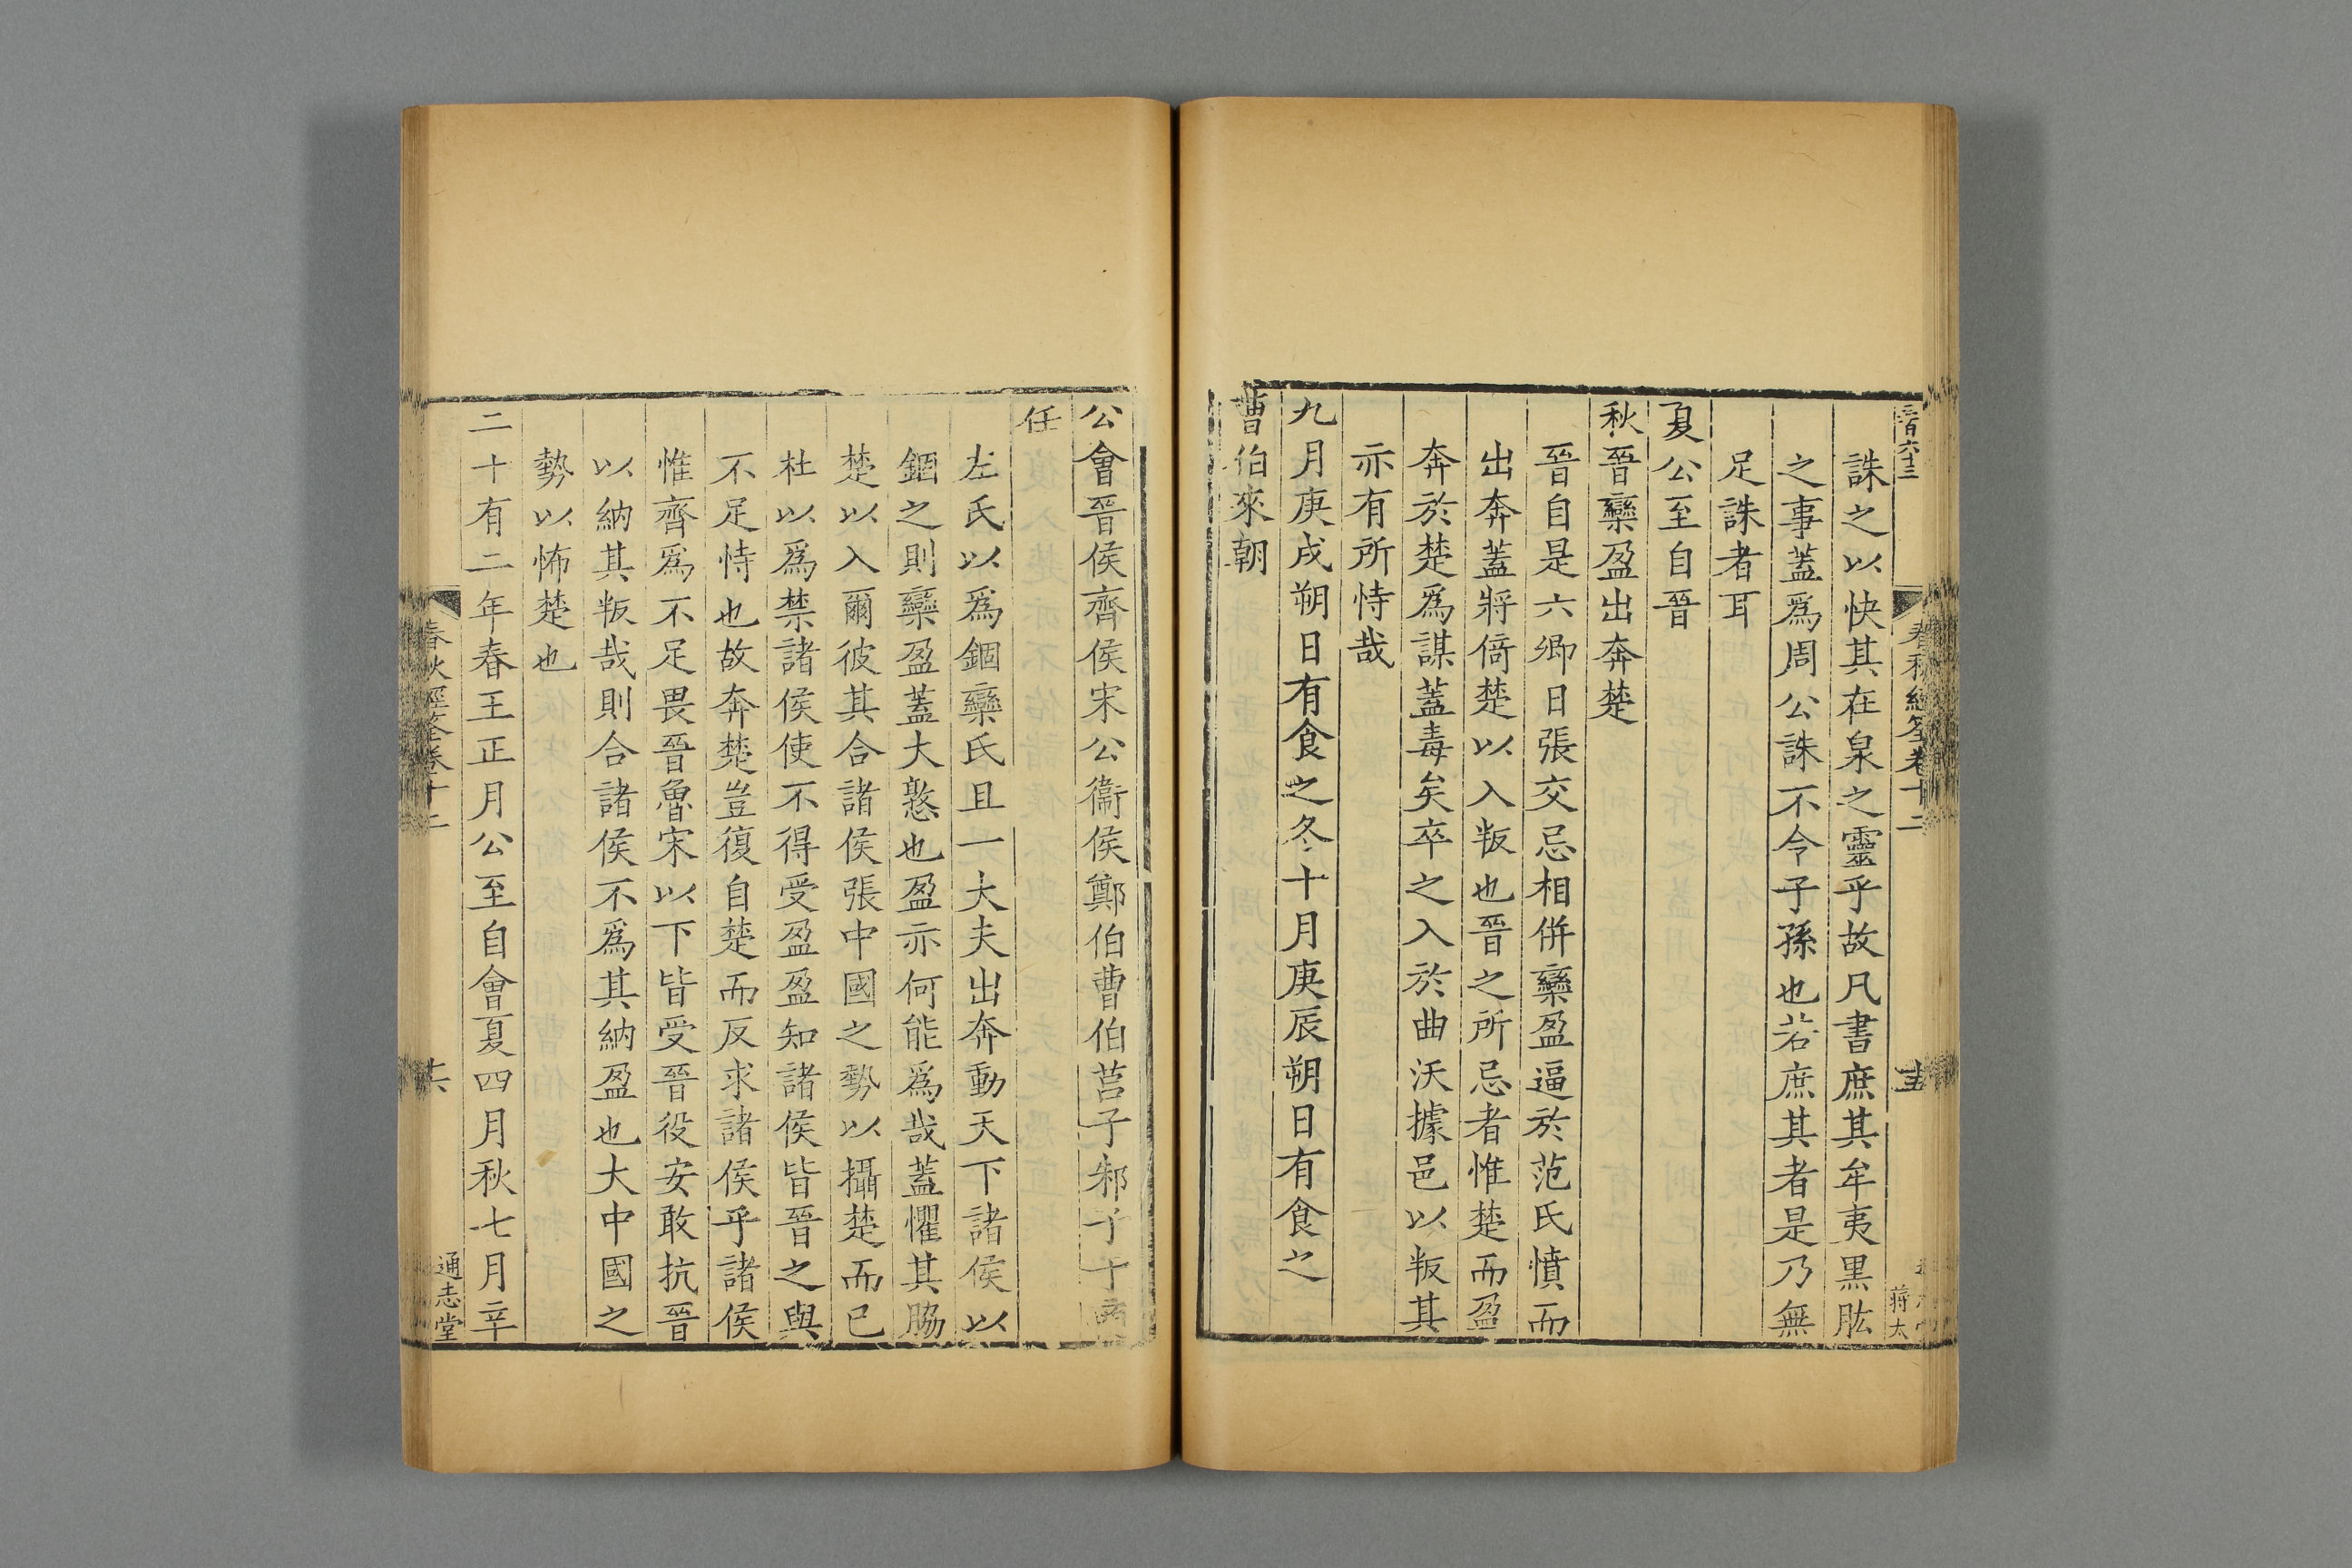 誅之以快其在泉之靈乎故凡書庶其牟夷黒肱
之事蓋爲周公誅不令子孫也若庶其者是乃無
足誅者耳
夏公至自晉
秋晉欒盈出奔楚
晉自是六卿日張交忌相併欒盈逼於范氏憤而
出奔蓋將倚楚以入叛也晉之所忌者惟楚而盈
奔於楚爲謀蓋毒矣卒之入於曲沃據邑以叛其
亦有所恃哉
九月庚戌朔日有食之冬十月庚辰朔日有食之
曹伯來朝
公會晉侯齊侯宋公衞侯鄭伯曹伯莒子邾子于商
任
左氏以爲錮欒氏且一大夫出奔動天下諸侯以
錮之則欒盈蓋大憝也盈亦何能爲哉蓋懼其脇
楚以入爾彼其合諸侯張中國之勢以攝楚而已
杜以爲禁諸侯使不得受盈盈知諸侯皆晉之與
不足恃也故奔楚豈復自楚而反求諸侯乎諸侯
惟齊爲不足畏晉魯宋以下皆受晉役安敢抗晉
以納其叛哉則合諸侯不爲其納盈也大中國之
勢以怖楚也
二十有二年春王正月公至自會夏四月秋七月辛
春秋經筌卷十二
通志堂